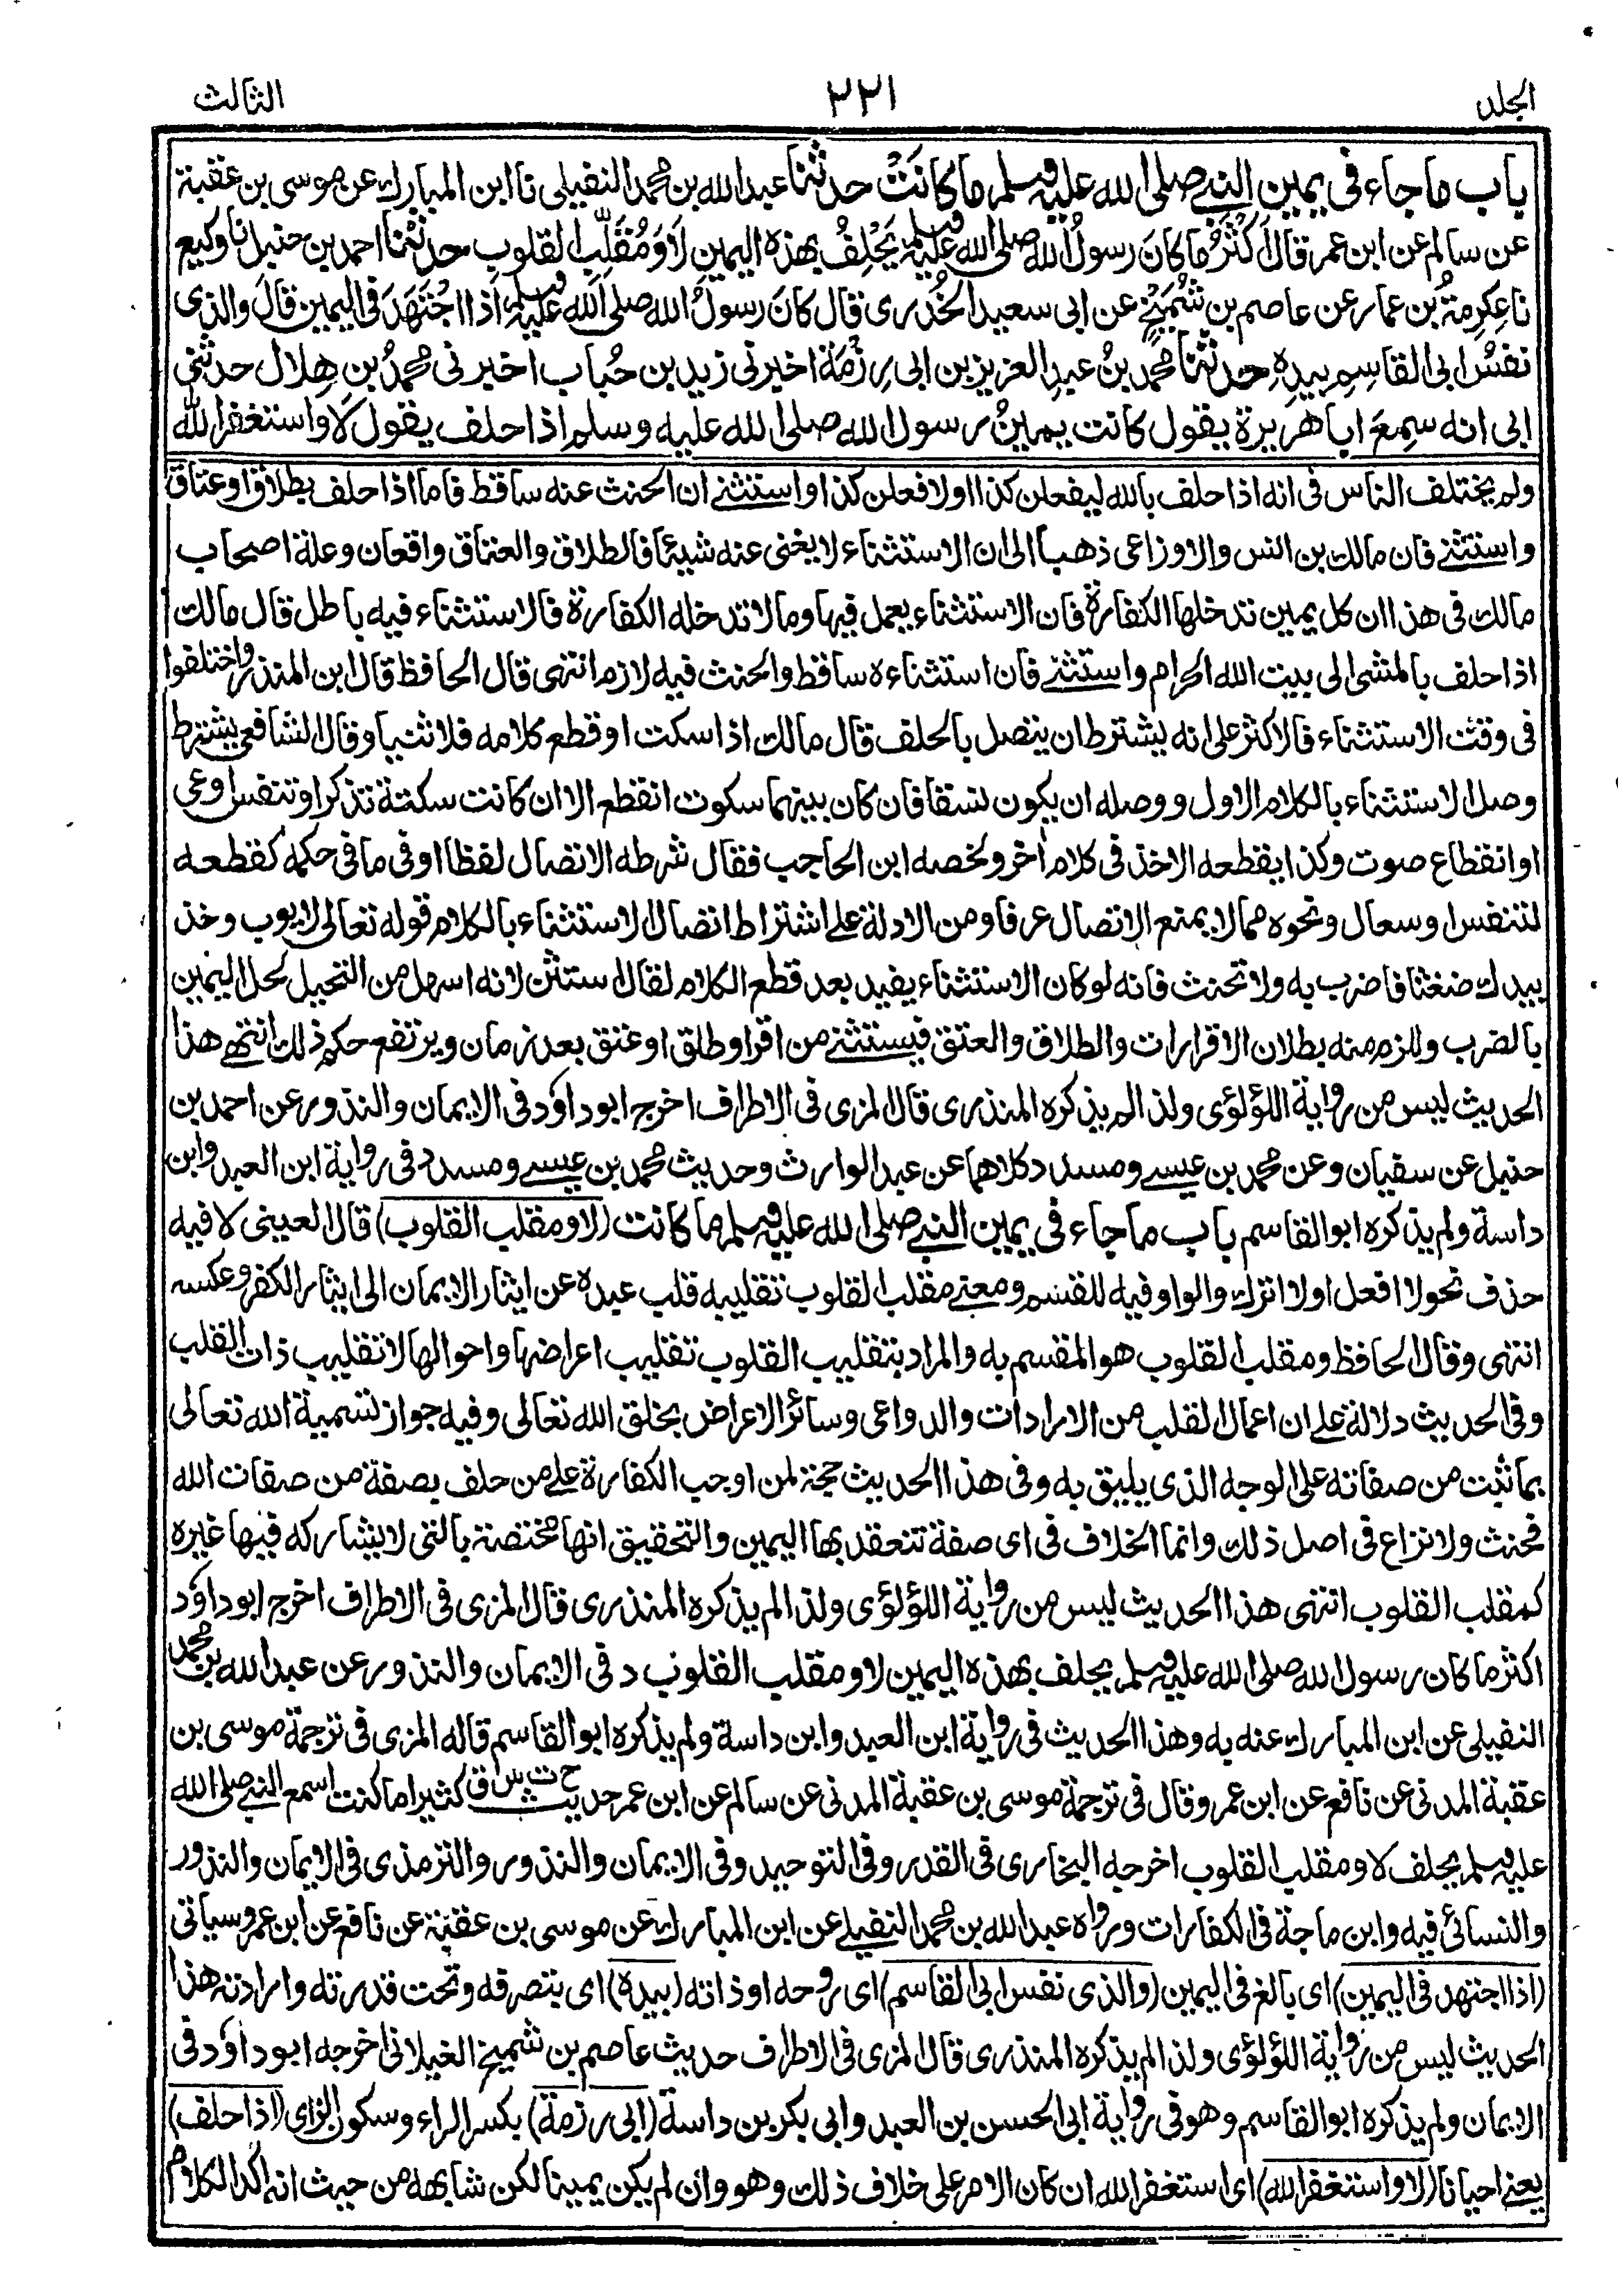 الجلد ٢٢١ الثالث
باب ما جاء فى يمين النبي صلى الله عليه وسلم ما كانت حدثنا عبد الله بن محمد النفيلى نا ابن المبارك عن موسى بن عقبة
عن سالم عن ابن عمر قال أكثرُ ما كان رسولُ الله صلى الله عليه وسلم يَحْلِفُ بهذه اليمين لَا وَمُقَلِّبِ القلوب حدثنا احمد بن حنبل نا وكيع
نا عِكرِمةُ بن عمار عن عاصم بن شُمَيْخٍ عن ابى سعيد الخُدرى قال كان رسولُ الله صلى الله عليه وسلم اذا اجْتَهَدَ فى اليمين قال والذى
نفسُ ابى القاسِمِ بيدِهِ حدثنا محمد بنُ عبدِ العزيز بن ابى رِزْمَة اخبرنى زيد بن حُباب اخبرنى محمدُ بن هِلال حدثنى
ابى انه سمِعَ ابا هريرة يقول كانت يمينُ رسول الله صلى الله عليه وسلم اذا حلف يقول لَا واستغفر الله
ولم يختلف الناس فى انه اذا حلف بالله ليفعلن كذا او لا فعلن كذا واستثنى ان الحنث عنه ساقط فاما اذا حلف بطلاق او عتاق
واستثنى فان مالك بن انس والاوزاعى ذهبا الى ان الاستثناء لا يغنى عنه شيئا فالطلاق والعتاق واقعان وعلة اصحاب
مالك فى هذا ان كل يمين تدخلها الكفارة فان الاستثناء يعمل فيها وما لا تدخله الكفارة فالاستثناء فيه باطل قال مالك
اذا حلف بالمشى الى بيت الله الحرام واستثنى فان استثناءه ساقط والحنث فيه لازم انتهى قال الحافظ قال ابن المنذر واختلفوا
فى وقت الاستثناء فالاكثر على انه يشترط ان يتصل بالحلف قال مالك اذا سكت او قطع كلامه فلا ثنيا وقال الشافعى يشترط
وصل الاستثناء بالكلام الاول ووصله ان يكون نسقا فان كان بينهما سكوت انقطع الا ان كانت سكتة تذكر او تنفس او عى
او انقطاع صوت وكذا يقطعه الاخذ فى كلام اخر ولخصه ابن الحاجب فقال شرطه الاتصال لفظا او فى ما فى حكمه كقطعه
لتنفس او سعال ونحوه مما لا يمنع الاتصال عرفا ومن الادلة على اشتراط اتصال الاستثناء بالكلام قوله تعالى لايوب وخذ
بيدك ضغثا فاضرب به ولا تحنث فانه لو كان الاستثناء يفيد بعد قطع الكلام لقال استثن لانه اسهل من التحيل لحل اليمين
بالضرب وللزم منه بطلان الاقرارات والطلاق والعتق فيستثنى من اقر او طلق او عتق بعد زمان ويرتفع حكم ذلك انتهى هذا
الحديث ليس من رواية اللؤلؤى ولذا لم يذكره المنذرى قال المزى فى الاطراف اخرج ابو داؤد فى الايمان والنذور عن احمد بن
حنبل عن سفيان وعن محمد بن عيسى ومسدد كلاهما عن عبد الوارث وحديث محمد بن عيسى ومسدد فى رواية ابن العبد وابن
داسة ولم يذكره ابو القاسم باب ما جاء فى يمين النبى صلى الله عليه وسلم ما كانت (لا ومقلب القلوب) قال العينى لا فيه
حذف نحو لا افعل او لا اترك والواو فيه للقسم ومعنى مقلب القلوب تقليبه قلب عبده عن ايثار الايمان الى ايثار الكفر وعكسه
انتهى وقال الحافظ ومقلب القلوب هو المقسم به والمراد بتقليب القلوب تقليب اعراضها واحوالها لا تقليب ذات القلب
وفى الحديث دلالة على ان اعمال القلب من الارادات والدواعى وسائر الاعراض بخلق الله تعالى وفيه جواز تسمية الله تعالى
بما ثبت من صفاته على الوجه الذى يليق به وفى هذا الحديث حجة لمن اوجب الكفارة على من حلف بصفة من صفات الله
فحنث ولا نزاع فى اصل ذلك وانما الخلاف فى اى صفة تنعقد بها اليمين والتحقيق انها مختصة بالتى لا يشاركه فيها غيره
كمقلب القلوب انتهى هذا الحديث ليس من رواية اللؤلؤى ولذا لم يذكره المنذرى قال المزى فى الاطراف اخرج ابو داؤد
اكثر ما كان رسول الله صلى الله عليه وسلم يحلف بهذه اليمين لا ومقلب القلوب د فى الايمان والنذور عن عبد الله بن محمد
النفيلى عن ابن المبارك عنه به وهذا الحديث فى رواية ابن العبد وابن داسة ولم يذكره ابو القاسم قاله المزى فى ترجمة موسى بن
عقبة المدنى عن نافع عن ابن عمر وقال فى ترجمة موسى بن عقبة المدنى عن سالم عن ابن عمر حديث خ ت س ق كثيرا ما كنت اسمع النبى صلى الله
عليه وسلم يحلف لا ومقلب القلوب اخرجه البخارى فى القدر وفى التوحيد وفى الايمان والنذور والترمذى فى الايمان والنذور
والنسائى فيه وابن ماجة فى الكفارات ورواه عبد الله بن محمد النفيلى عن ابن المبارك عن موسى بن عقبة عن نافع عن ابن عمر وسياتى
(اذا اجتهد فى اليمين) اى بالغ فى اليمين (والذى نفس ابى القاسم) اى روحه او ذاته (بيده) اى بتصرفه وتحت قدرته وارادته هذا
الحديث ليس من رواية اللؤلؤى ولذا لم يذكره المنذرى قال المزى فى الاطراف حديث عاصم بن شميخ الغيلانى اخرجه ابو داؤد فى
الايمان ولم يذكره ابو القاسم وهو فى رواية ابى الحسن بن العبد وابى بكر بن داسة (ابى رزمة) بكسر الراء وسكون الزاى (اذا حلف)
يعنى احيانا (لا واستغفر الله) اى استغفر الله ان كان الامر على خلاف ذلك وهو وان لم يكن يمينا لكن شابهه من حيث انه اكد الكلام